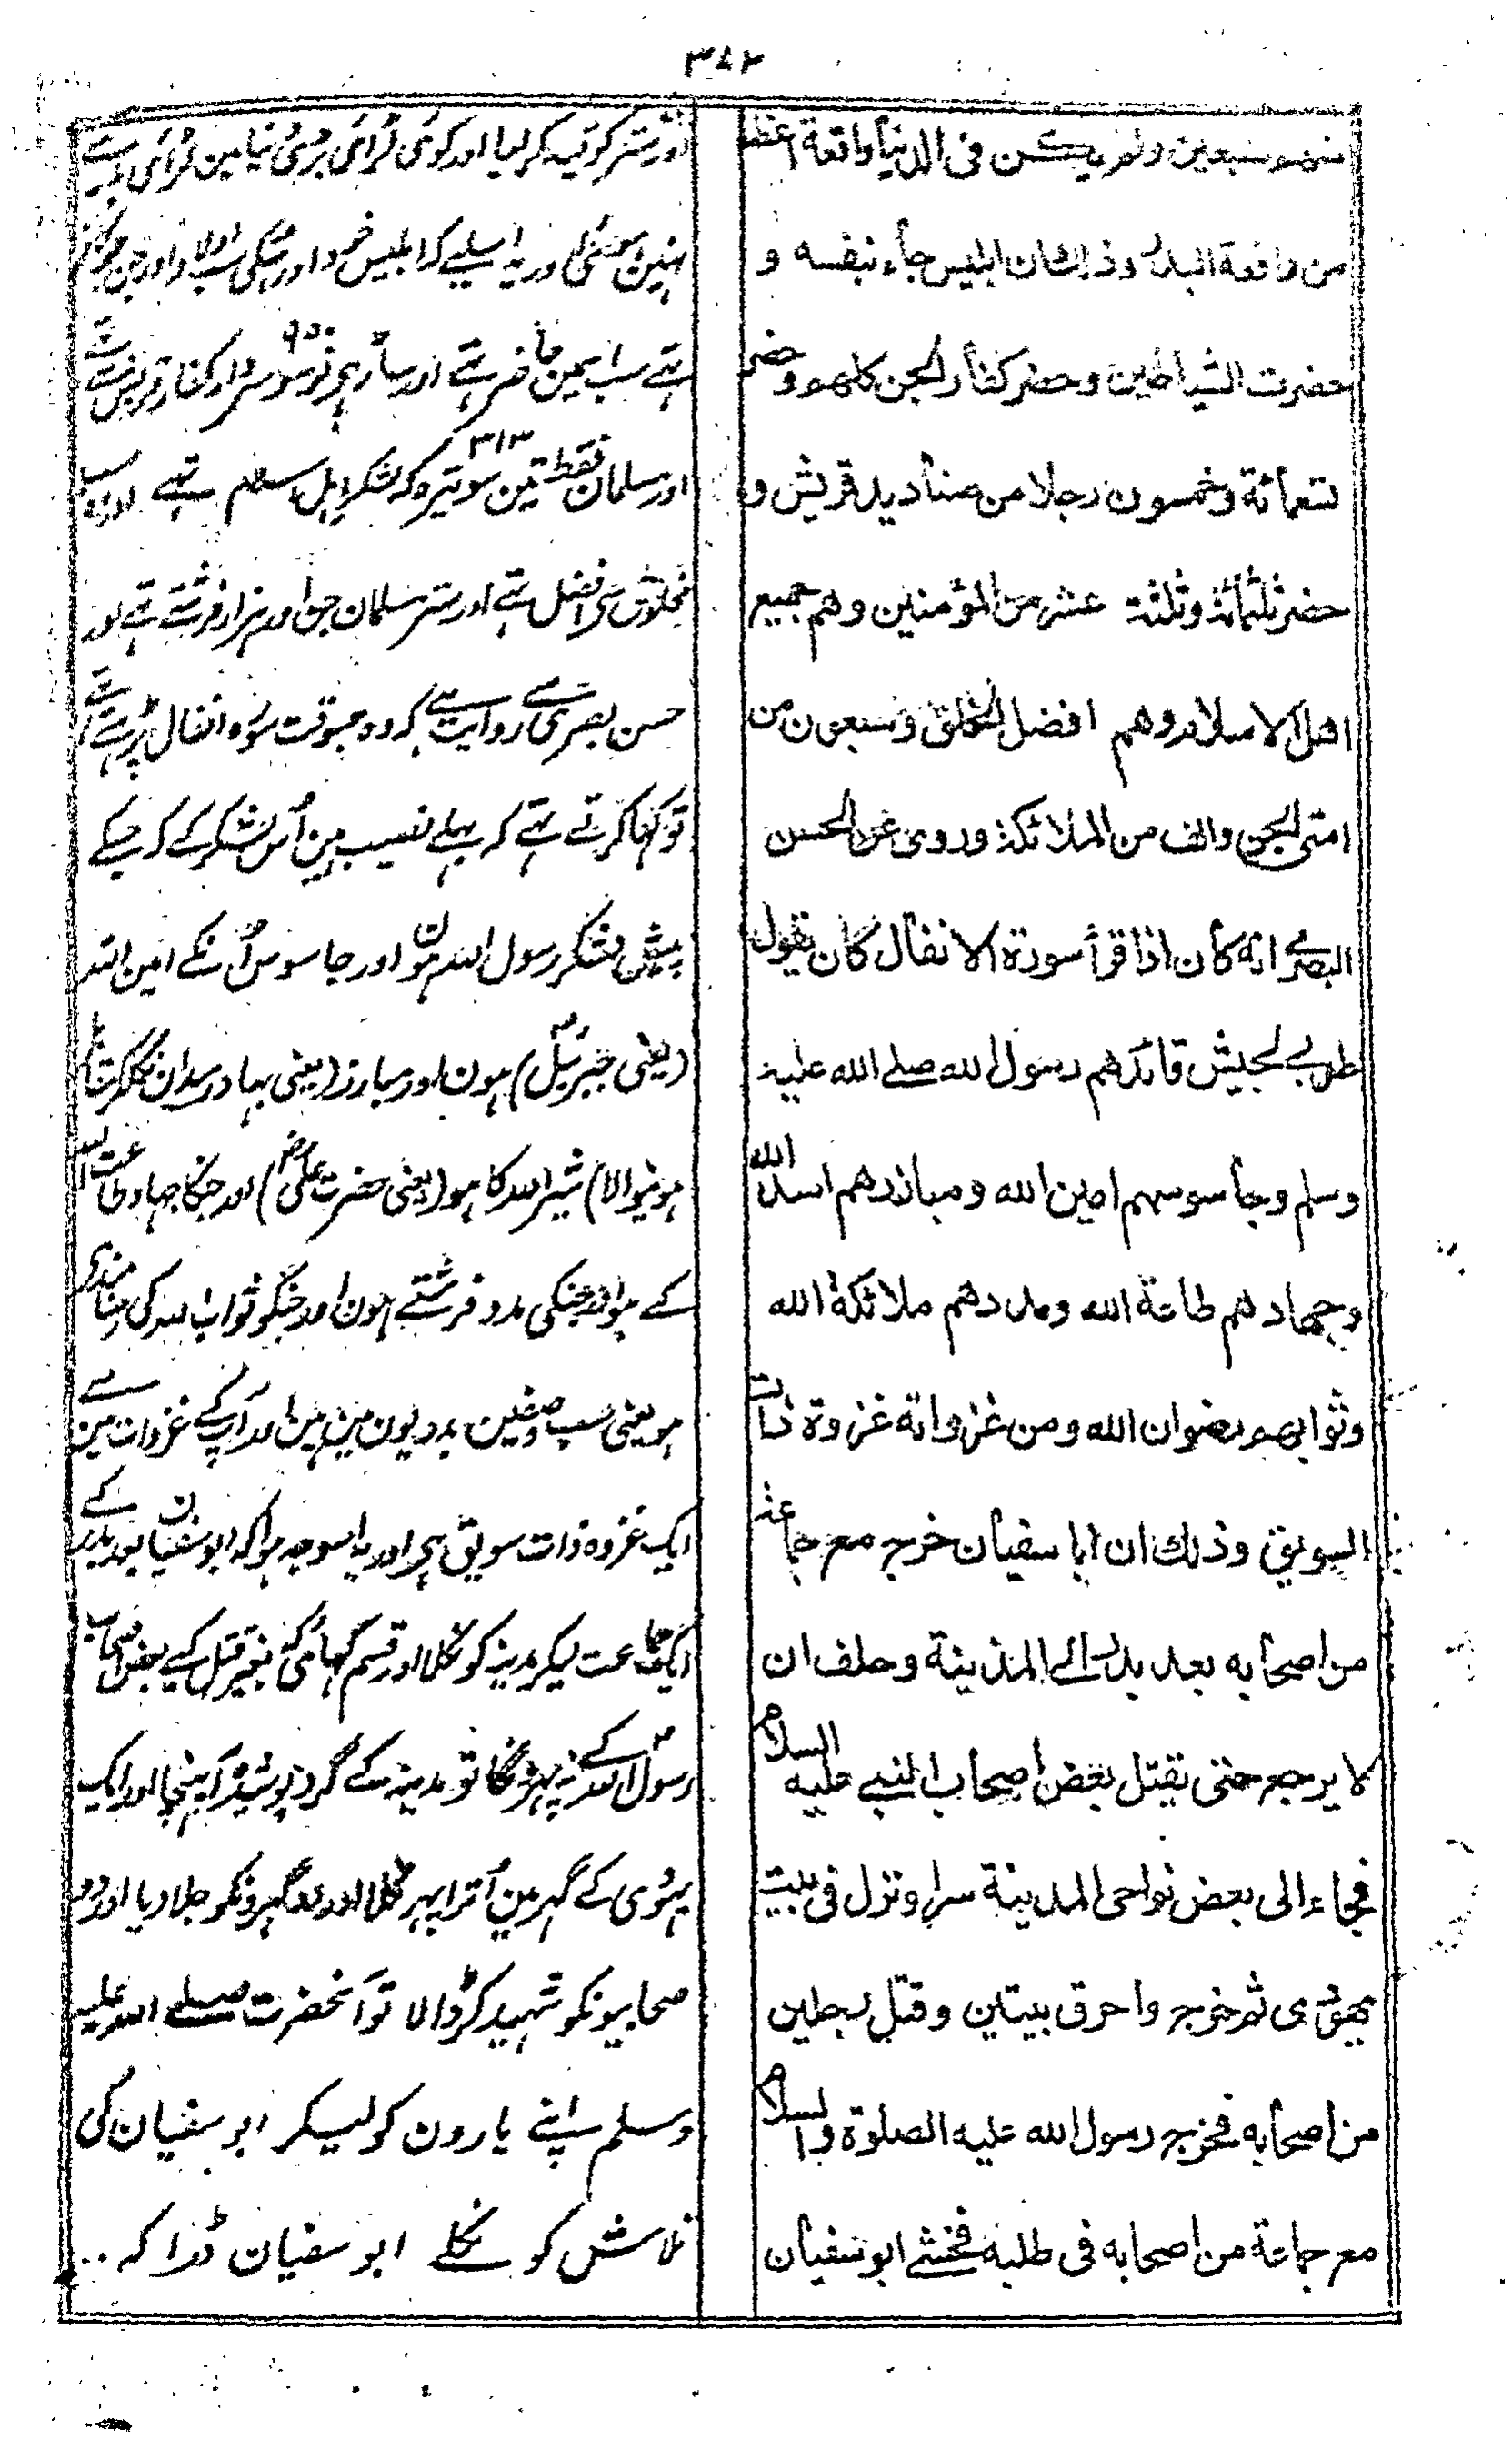 ۳۷۲
منهم سبعين ولم يكن فى الدنيا واقعة اعظم
من واقعة البدر وذلك ان ابليس جاء بنفسه و
حضرت الشياطين وحضر كفار الجن كلهم وحضر
تسعمائة وخمسون رجلا من صناديد قريش و
حضر ثلثمائة وثلثة عشر من المؤمنين وهم جميع
اهل الاسلام وهم افضل الخلق وسبعون من
امتى الجن والف من الملائكة وروى عن الحسن
البصرى انه كان اذا قرأ سورة الانفال كان يقول
طوبى لجيش قائدهم رسول الله صلے الله عليه
وسلم وجاسوسهم امين الله ومبارزهم اسد الله
وجهادهم طاعة الله ومددهم ملائكة الله
وثوابهم رضوان الله ومن غزواته غزوة ذات
السويق وذلك ان ابا سفيان خرج مع جماعة
من اصحابه بعد بدر الى المدينة وحلف ان
لا يرجع حتى يقتل بعض اصحاب النبى عليه السلام
فجاء الى بعض نواحى المدينة سرا ونزل فى بيت
يهودى ثم خرج واحرق بيتين وقتل رجلين
من اصحابه فخرج رسول الله عليه الصلوة والسلام
مع جماعة من اصحابه فى طلبه فخشى ابو سفيان
اور ستر کو قید کر لیا اور کوئی لڑائی بڑی دنیا مین لڑائی بدر سے
نہین ہوئی اور یہ اسلیے کہ ابلیس خود اور اسکی سب اولاد اور جن جو کافر
تہے سب اسمین حاضر تہے اور ساڑہے نو سو ۹۵۰ سردار کفار قریش تہے
اور مسلمان فقط تین سو تیرہ ۳۱۳ کہ لشکر اہل اسلام تہے اور وہ سب
مخلوق سی افضل تہے اور ستر مسلمان جن اور ہزار فرشتے تہے اور
حسن بصری سے روایت ہے کہ وہ جسوقت سورہ انفال پڑہتے تہے
تو کہا کرتے تہے کہ بہلے نصیب ہین اُس لشکر کے کہ جسکے
پیش لشکر رسول اللہ ہون اور جاسوس اُنکے امین اللہ
(یعنی جبرئیل) ہون اور مبارز (یعنی بہادر میدان مین نکلکر مقابل
ہونیوالا) شیر اللہ کا ہو (یعنی حضرت علیؓ) اور جنکا جہاد طاعت اللہ
کے ہو اور جنکی مدد فرشتے ہون اور جنکو ثواب اللہ کی رضامندی
ہو یعنی سب صفتین بدریون مین ہین اور آپکے غزوات مین سے
ایک غزوہ ذات سویق ہی اور یہ اسوجہ ہوا کہ ابو سفیان بعد بدر کے
ایک جماعت لیکر مدینہ کو نکلا اور قسم کہائی کہ بغیر قتل کیے بعض اصحاب
رسول اللہ کے نہ پہرونگا تو مدینہ کے گرد پوشیدہ آ پہنچا اور ایک
یہودی کے گہر مین اُترا پہر نکلا اور دو گہرونکو جلا دیا اور دو
صحابیونکو شہید کر ڈالا تو آنحضرت صلے اللہ علیہ
وسلم اپنے یارون کو لیکر ابو سفیان کی
تلاش کو نکلے ابو سفیان ڈرا کہ ..